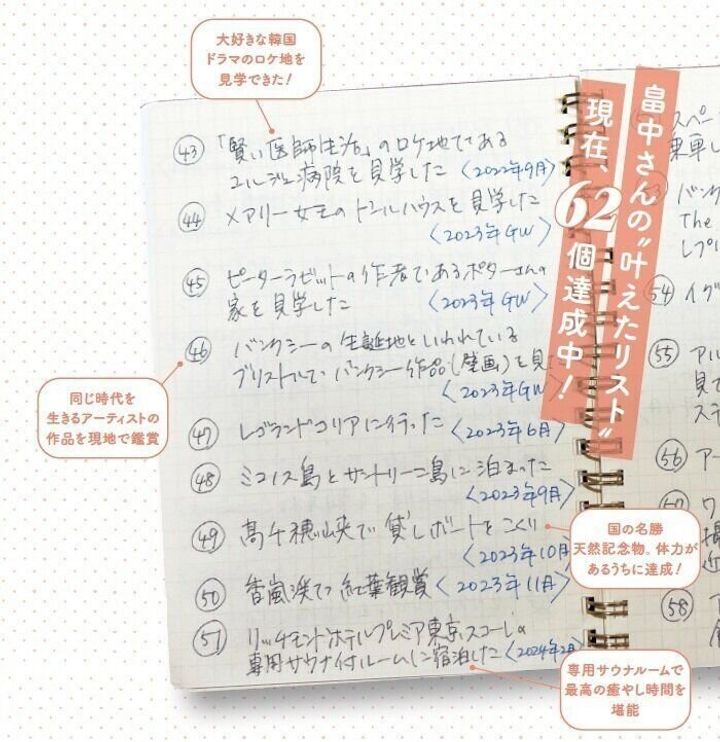 大好きな韓国
ドラマのロケ地を
見学できた!
畠中さんの"叶えたリスト"
現在、62個達成中!
㊸ 「賢い医師生活」のロケ地である
ユルジェ病院を見学した 〈2022年9月〉
㊹ メアリー女王のドールハウスを見学した
〈2023年GW〉
㊺ ピーターラビットの作者であるポターさんの
家を見学した 〈2023年GW〉
㊻ バンクシーの生誕地といわれている
ブリストルで、バンクシー作品(壁画)を見
〈2023年GW
同じ時代を
生きるアーティストの
作品を現地で鑑賞
㊼ レゴランドコリアに行った 〈2023年6月〉
㊽ ミコノス島とサントリーニ島に泊まった
〈2023年9月〉
㊾ 高千穂峡で貸しボートをこぐ
〈2023年10月
国の名勝
天然記念物。体力が
あるうちに達成!
㊿ 香嵐渓で紅葉観賞 〈2023年11月〉
51 リッチモンドホテルプレミア東京スコーレの
専用サウナ付ルームに宿泊した 〈2024年2月
専用サウナルームで
最高の癒やし時間を
堪能
スペー
乗車し
バンク
The
レプリ
54 イグ
55 アル
見て
ステ
56 アー
58